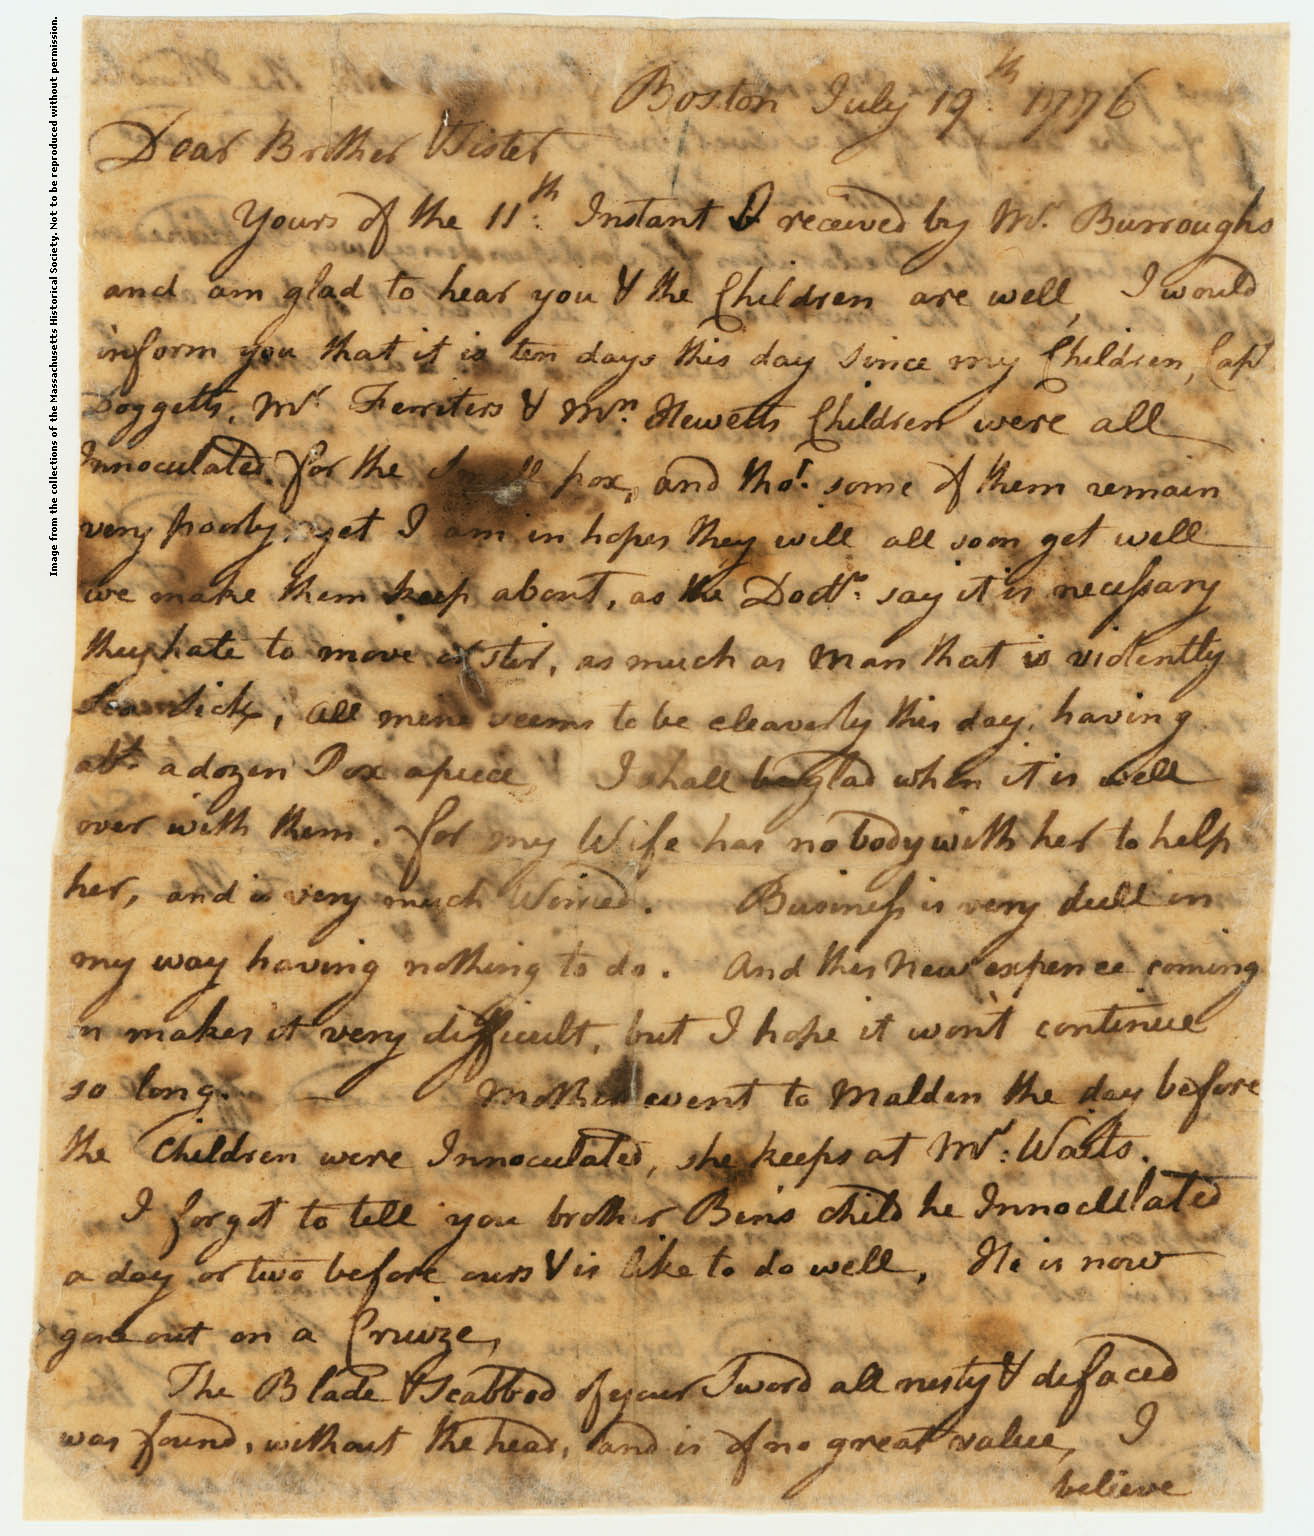 Image from the collections of the Massachusetts Historical Society. Not to be reproduced without permission.
Boston July 19th 1776
Dear Brother & Sister
Yours of the 11th: Instant I received by Mr. Burroughs
and am glad to hear you & the Children are well, I would
inform you that it is ten days this day since my Children, Capt
Doggetts, Mr Ferriters & Mrs: Hewetts Children were all
Innoculated for the Small pox, and tho': some of them remain
very poorly, yet I am in hopes they will all soon get well
we make them keep about, as the Doctrs: say it is necessary
they hate to move or stir, as much as Man that is violently
Sea Sick, all mine seems to be cleaverly this day, having
abt: a dozen Pox apiece, I shall be glad when it is well
over with them, for my Wife has nobody with her to help
her, and is very much Worried. Business is very dull in
my way having nothing to do. And this new expence coming
n makes it very difficult, but I hope it won't continue
so long. — Mother went to Malden the day before
the Children were Innoculated, she keeps at Mr: Waits.
I forgot to tell you brother Bin's child he Innocullated
a day or two before ours & is like to do well, He is now
gone out on a Cruize,
The Blade & Scabbod of your Sword all rusty & defaced
was found, without the head, and is of no great value, I
believe